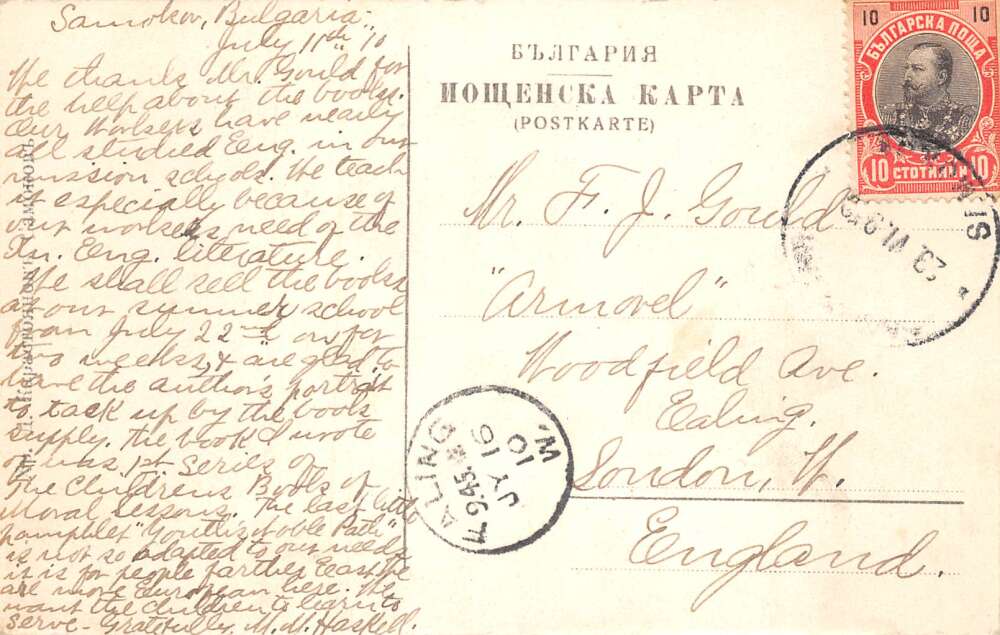 Samokov, Bulgaria.
July 11th '10
We thank Mr. Gould for
the help about the books.
Our workers have nearly
all studied Eng. in our
mission schools. We teach
it especially because of
our workers need of the
Eng. literature.
We shall sell the books
at our summer school
from July 22nd on for
two weeks, & are glad to
have the author's portrait
to tack up by the books
supply. The book I wrote
of was 1st Series of
The Childrens Book of
Moral Lessons. The last little
pamphlet "Youth's Noble Path"
is not so adapted to our needs
it is for people farther East. We
are more European here. We
want the children to learn to
serve - Gratefully, M. M. Haskell.
БЪЛГАРИЯ
ПОЩЕНСКА КАРТА
(POSTKARTE)
Mr. F. J. Gould
"Armorel"
Woodfield Ave.
Ealing.
London, W.
England.
10 10
БЪЛГАРСКА ПОЩА
10 СТОТИНКИ 10
23 VI 910
EALING W.
9.45 PM
JY 16
10